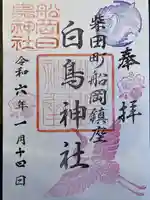 奉拝
柴田町船岡鎮座
白鳥神社
船岡白
鳥神社
令和六年一月十四日